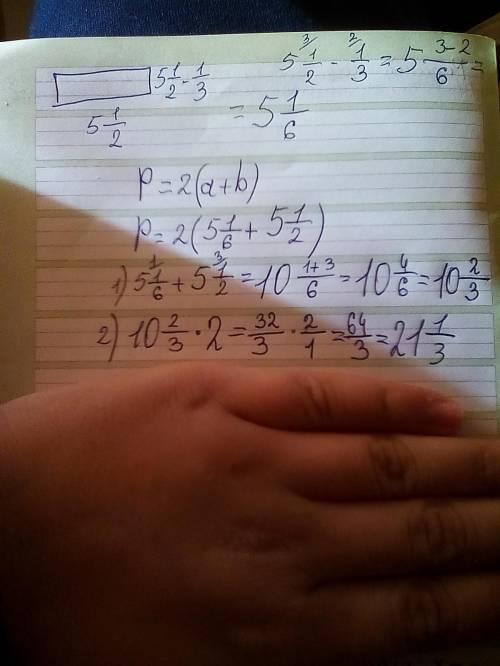 5 1/2 - 1/3
5 1/2
5 3/ 1/2 - 2/ 1/3 = 5 3-2/6 =
= 5 1/6
P = 2(a+b)
P = 2(5 1/6 + 5 1/2)
1) 5 1/ 1/6 + 5 3/ 1/2 = 10 1+3/6 = 10 4/6 = 10 2/3
2) 10 2/3 · 2 = 32/3 · 2/1 = 64/3 = 21 1/3